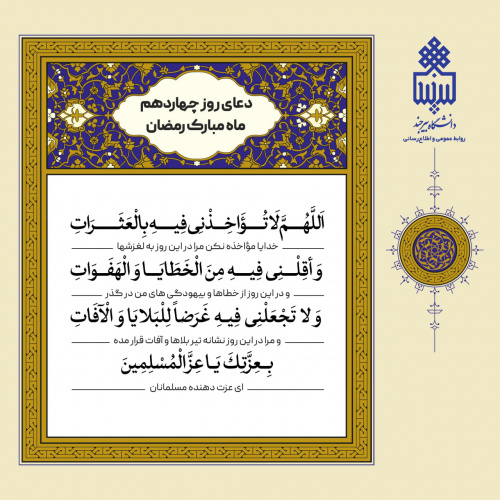 دعای روز چهاردهم
ماه مبارک رمضان
اَللَّهُمَّ لَا تُؤَاخِذْنِی فِیهِ بِالْعَثَرَاتِ
خدایا مؤاخذه نکن مرا در این روز به لغزشها
وَ أَقِلْنِی فِیهِ مِنَ الْخَطَایَا وَ الْهَفَوَاتِ
و در این روز از خطاها و بیهودگی های من در گذر
وَ لا تَجْعَلْنِی فِیهِ غَرَضاً لِلْبَلایَا وَ الْآفَاتِ
و مرا در این روز نشانه تیر بلاها و آفات قرار مده
بِعِزَّتِكَ یَا عِزَّ الْمُسْلِمِینَ
ای عزت دهنده مسلمانان
دانشگاه بیرجند
روابط عمومی و اطلاع‌رسانی